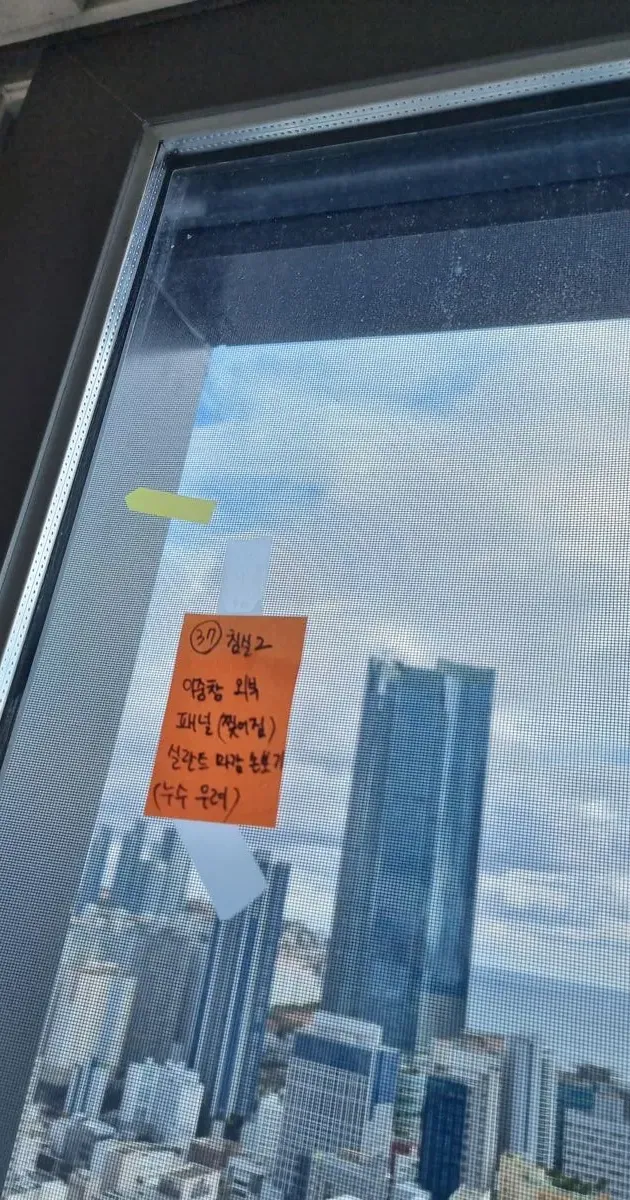 ㊲ 침실2
이중창 외부
패널 (찢어짐)
실란트 마감
(누수 우려)